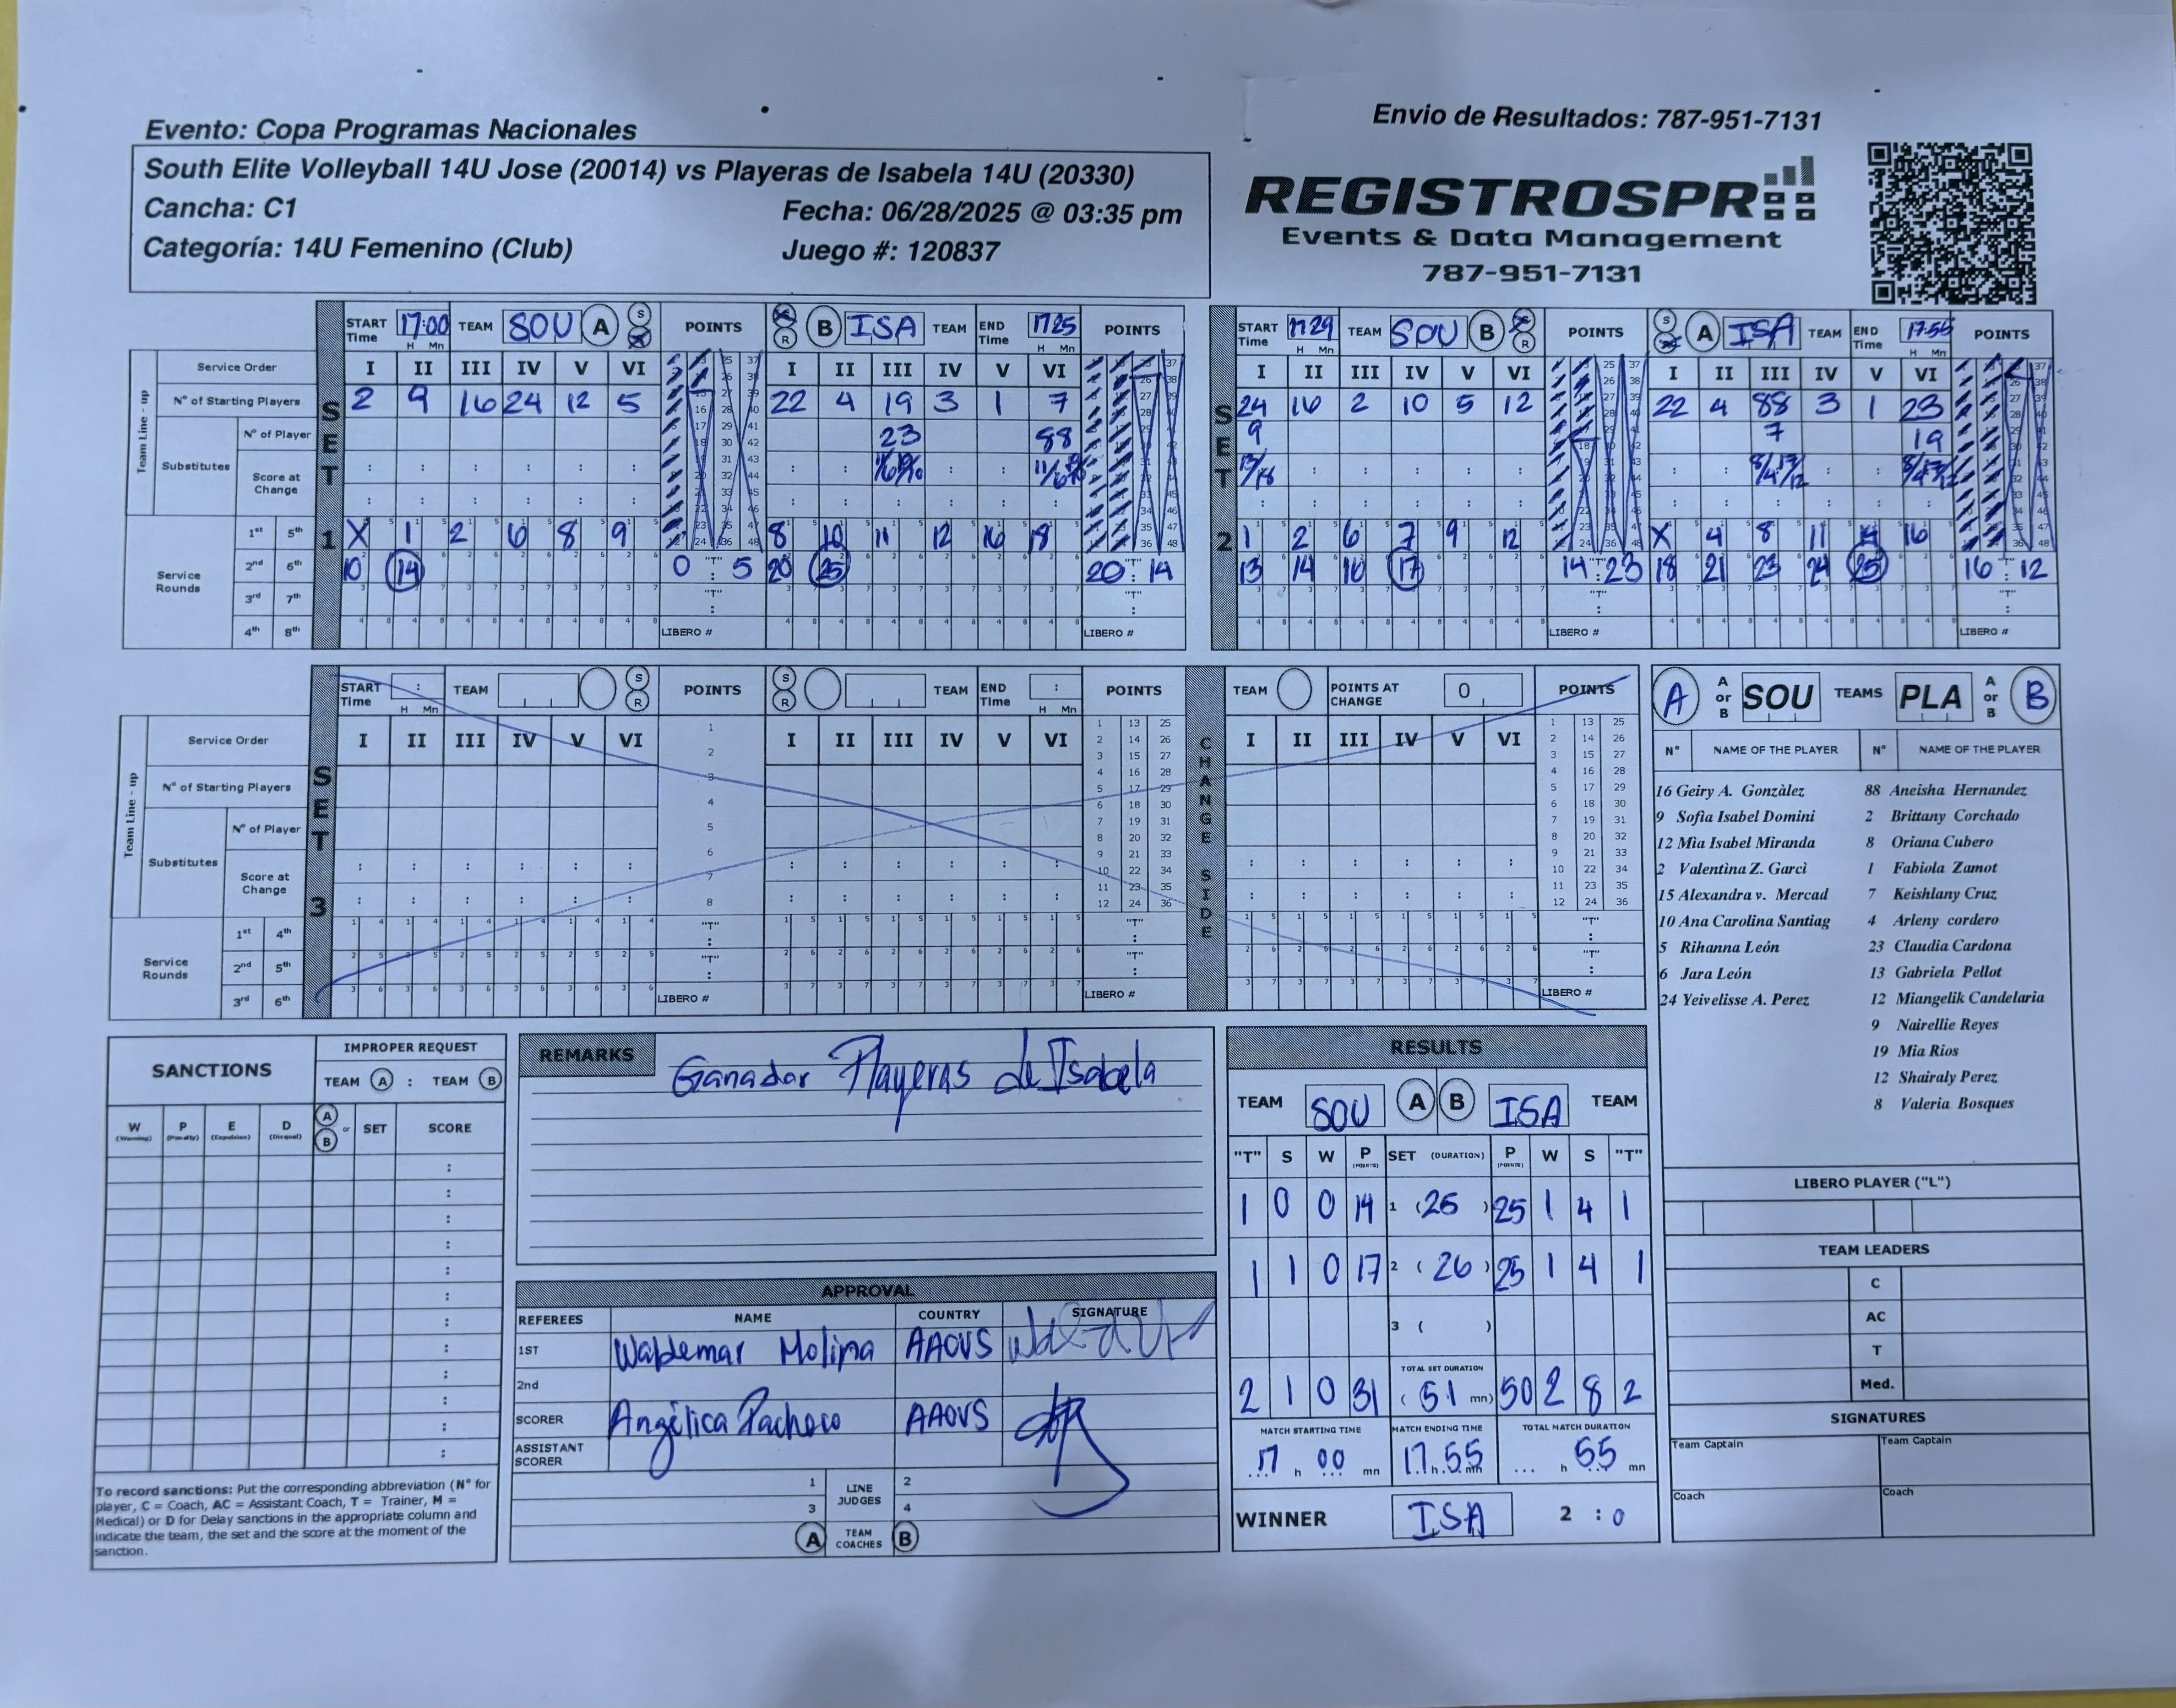 Evento: Copa Programas Nacionales
Envio de Resultados: 787-951-7131
South Elite Volleyball 14U Jose (20014) vs Playeras de Isabela 14U (20330)
Cancha: C1
Fecha: 06/28/2025 @ 03:35 pm
Categoría: 14U Femenino (Club)
Juego #: 120837
REGISTROSPR
Events & Data Management
787-951-7131
START Time 17:00 H Mn TEAM SOU A S R POINTS S R B ISA TEAM END Time 1725 H Mn POINTS
Team Line - up
Service Order I II III IV V VI I II III IV V VI
N° of Starting Players 2 9 16 24 12 5 22 4 19 3 1 7
Substitutes N° of Player 23 88
Score at Change
SET 1
Service Rounds
1st 5th X 1 2 6 8 9 8 10 11 12 16 18
2nd 6th 10 14 0 "T" : 5 20 25 20 "T" : 14
3rd 7th "T" : "T" :
4th 8th LIBERO # LIBERO #
START Time 1729 H Mn TEAM SOU B S R POINTS S R A ISA TEAM END Time 17:55 H Mn POINTS
I II III IV V VI I II III IV V VI
24 16 2 10 5 12 22 4 88 3 1 23
9 7 19
SET 2
1 2 6 7 9 12 X 4 8 11 14 16
13 14 16 17 14 "T" : 23 18 21 23 24 25 16 "T" : 12
"T" : "T" :
LIBERO # LIBERO #
START Time : H Mn TEAM S R POINTS S R TEAM END Time : H Mn POINTS TEAM POINTS AT CHANGE 0 POINTS
Team Line - up
Service Order I II III IV V VI I II III IV V VI I II III IV V VI
N° of Starting Players
Substitutes N° of Player
Score at Change
SET 3
CHANGE SIDE
Service Rounds
1st 4th "T" :
2nd 5th "T" :
3rd 6th LIBERO # LIBERO # LIBERO #
A A or B SOU TEAMS PLA A or B B
N° NAME OF THE PLAYER N° NAME OF THE PLAYER
16 Geiry A. Gonzàlez 88 Aneisha Hernandez
9 Sofia Isabel Domini 2 Brittany Corchado
12 Mia Isabel Miranda 8 Oriana Cubero
2 Valentìna Z. Garcì 1 Fabiola Zamot
15 Alexandra v. Mercad 7 Keishlany Cruz
10 Ana Carolina Santiag 4 Arleny cordero
5 Rihanna León 23 Claudia Cardona
6 Jara León 13 Gabriela Pellot
24 Yeivelisse A. Perez 12 Miangelik Candelaria
9 Nairellie Reyes
19 Mia Rios
12 Shairaly Perez
8 Valeria Bosques
LIBERO PLAYER ("L")
TEAM LEADERS
C
AC
T
Med.
SIGNATURES
Team Captain Team Captain
Coach Coach
SANCTIONS
IMPROPER REQUEST
TEAM A : TEAM B
W (Warning) P (Penalty) E (Expulsion) D (Disqual) A or B SET SCORE
To record sanctions: Put the corresponding abbreviation (N° for
player, C = Coach, AC = Assistant Coach, T = Trainer, M =
Medical) or D for Delay sanctions in the appropriate column and
indicate the team, the set and the score at the moment of the
sanction.
REMARKS
Ganador Playeras de Isabela
APPROVAL
REFEREES NAME COUNTRY SIGNATURE
1ST Waldemar Molina AAOVS
2nd
SCORER Angélica Pacheco AAOVS
ASSISTANT SCORER
1 LINE JUDGES 2
3 4
A TEAM COACHES B
RESULTS
TEAM SOU A B ISA TEAM
"T" S W P (POINTS) SET (DURATION) P (POINTS) W S "T"
1 0 0 14 1 (25) 25 1 4 1
1 1 0 17 2 (26) 25 1 4 1
3 ( )
TOTAL SET DURATION
2 1 0 31 (51 mn) 50 2 8 2
MATCH STARTING TIME MATCH ENDING TIME TOTAL MATCH DURATION
17 h 00 mn 17 h 55 mn ... h 55 mn
WINNER ISA 2 : 0